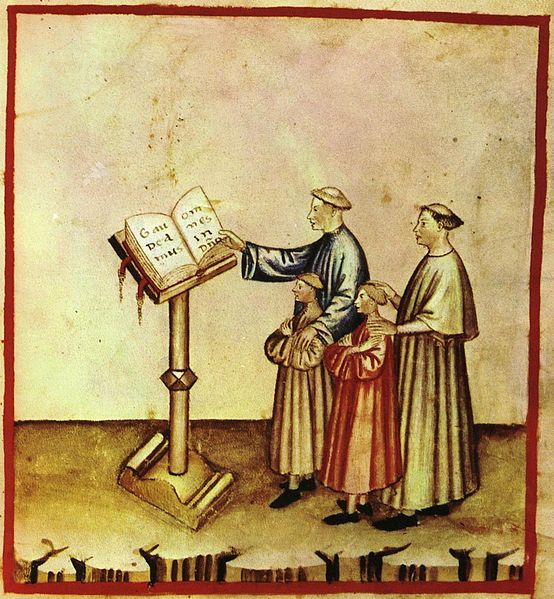 Gau
dea
mus
om
nes
in
Dño